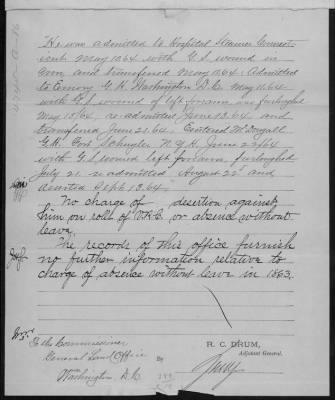 He was admitted to Hospital Steamer Connect-
icut May 10.64 with G.S. wound in
arm and transferred May 11.64. Admitted
to Emory G.H. Washington D.C. May 11.64
with G.S. wound of left forearm was furloughed
May 15/64, re-admitted June 13.64 and
transferred June 21.64. Entered McDougall
G.H. Fort Schuyler N.Y.H. June 22/64
with G.S. wound left forearm, furloughed
July 21. readmitted August 22 and
deserted Sept 13.64
No charge of desertion against
him on rolls of V.R.C. or absence without
leave.
The records of this office furnish
no further information relative to
charge of absence without leave in 1863.
To the Commissioner
General Land Office
Washington D.C.
R. C. DRUM,
Adjutant General.
By